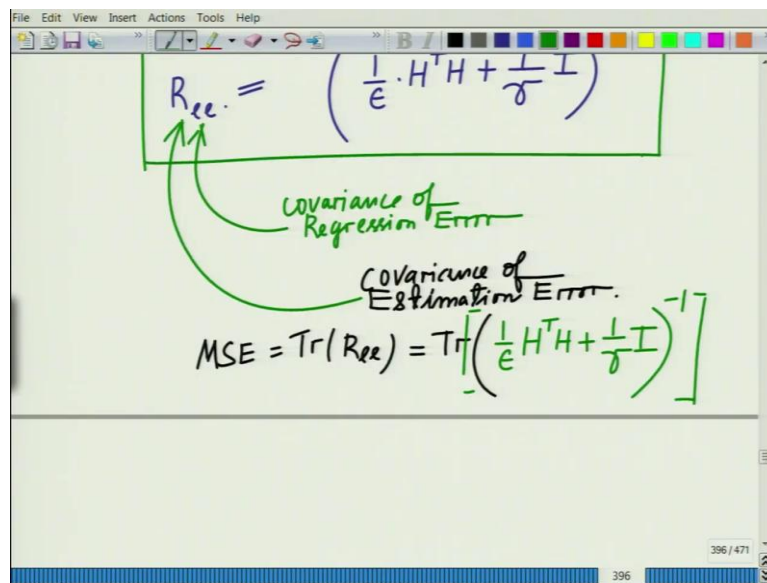 File Edit View Insert Actions Tools Help
B I
R_ee. = ( 1/ϵ · HᵀH + 1/γ I )
covariance of
Regression Error
covariance of
Estimation Error.
MSE = Tr(R_ee) = Tr[( 1/ϵ HᵀH + 1/γ I )⁻¹]
396 / 471
396